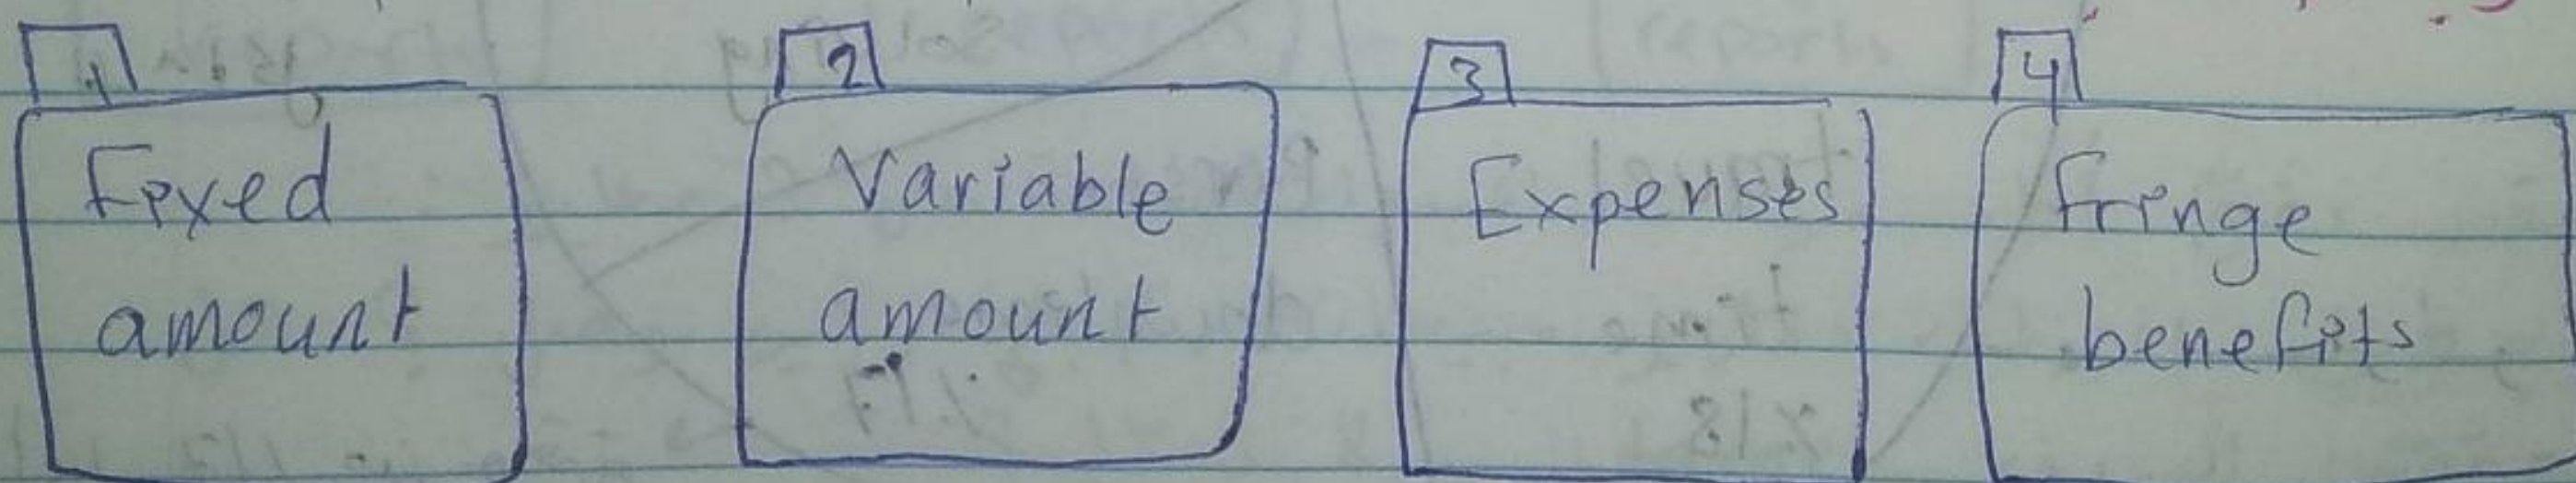 1
Fixed
amount
2
Variable
amount
3
Expenses
4
Fringe
benefits